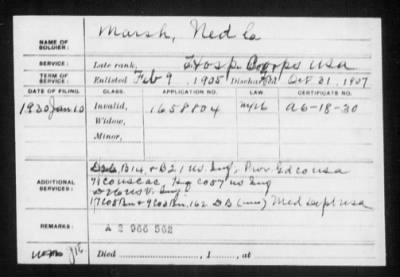 NAME OF SOLDIER: Marsh, Ned C
SERVICE: Late rank, Hosp Corps USA
TERM OF SERVICE: Enlisted Feb 9, 1905 Discharged Oct 21, 1907
DATE OF FILING. CLASS. APPLICATION NO. LAW. CERTIFICATE NO.
1920 Jan 10 Invalid, 1658804 A6-18-30
Widow,
Minor,
ADDITIONAL SERVICES: B 14 & B 21 US Inf, Prov. Gd co USA
Hq co 57 US Inf
D 26 US V. Inf.
162 D B Med Dept USA
REMARKS: A 2 966 562
Died , 1 , at